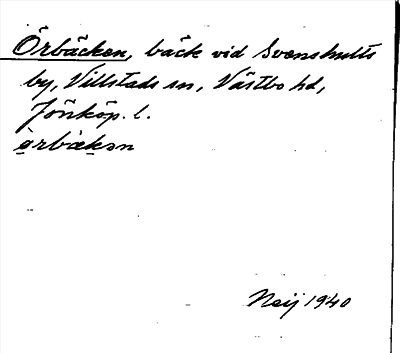 Örbäcken, bäck vid Svenshults
by, Villstads sn, Västbo hd,
Jönköp. l.
Neij 1940